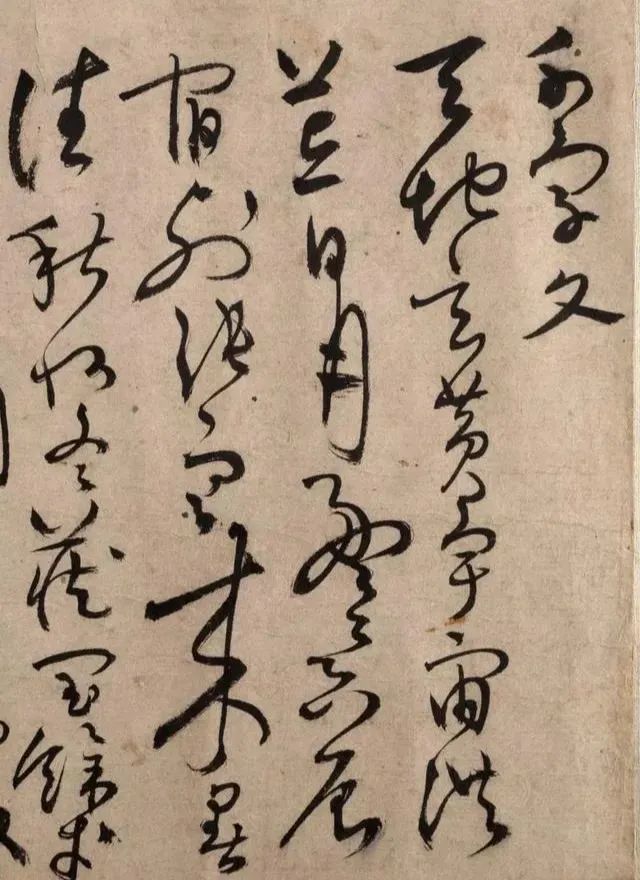 千字文
天地玄黄宇宙洪
荒日月盈昃辰
宿列張寒来暑
往秋收冬藏閏餘成